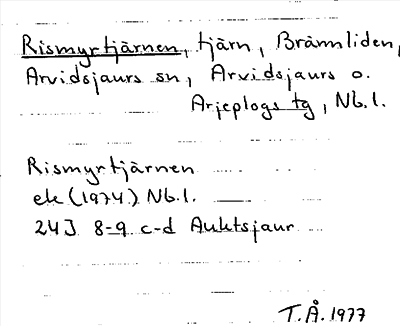 Rismyrtjärnen, tjärn, Brännliden,
Arvidsjaurs sn, Arvidsjaurs o.
Arjeplogs tg, Nb.l.
Rismyrtjärnen
ek (1974) Nb.l.
24J 8-9 c-d Auktsjaur
T.Å. 1977